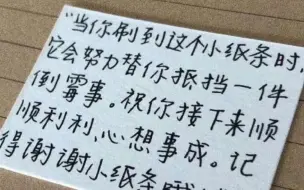 "当你刷到这个小纸条时,
它会努力替你抵挡一件
倒霉事。祝你接下来顺
顺利利、心想事成。记
得谢谢小纸条哦